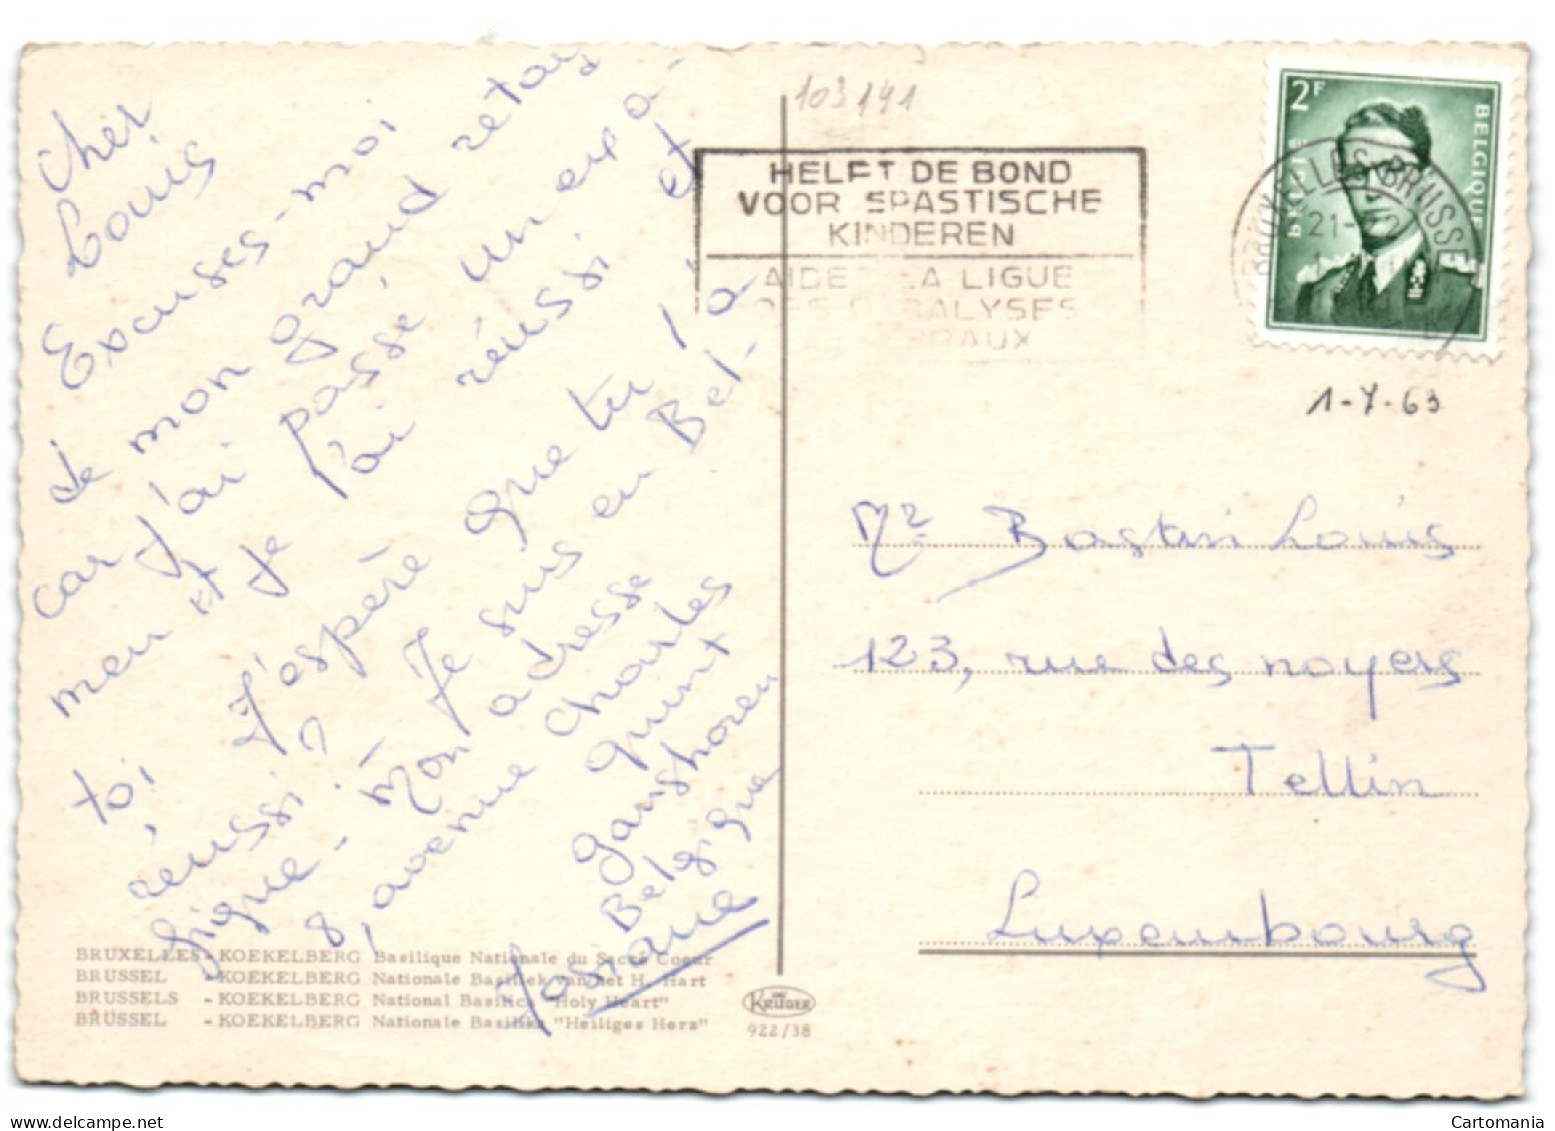 cher
Louis
Excuses-moi
de mon grand retard
car j'ai passé un exa-
men et je l'ai réussi et
toi, j'espère que tu l'a
réussi? Je suis en Bel-
gique - Mon adresse
8, avenue Charles
quint
ganshoren
Belgique
Josiane
BRUXELLES - KOEKELBERG Basilique Nationale du Sacré Coeur
BRUSSEL - KOEKELBERG Nationale Basiliek van het H. Hart
BRUSSELS - KOEKELBERG National Basilica "Holy Heart"
BRÜSSEL - KOEKELBERG Nationale Basilika "Heiliges Herz"
KRÜGER
922/38
103141
HELFT DE BOND
VOOR SPASTISCHE
KINDEREN
AIDEZ LA LIGUE
DES PARALYSES
2F
BELGIE BELGIQUE
BRUXELLES-BRUSSEL
21-
1-7-63
Mr Bastin Louis
123, rue des noyers
Tellin
Luxembourg
Cartomania